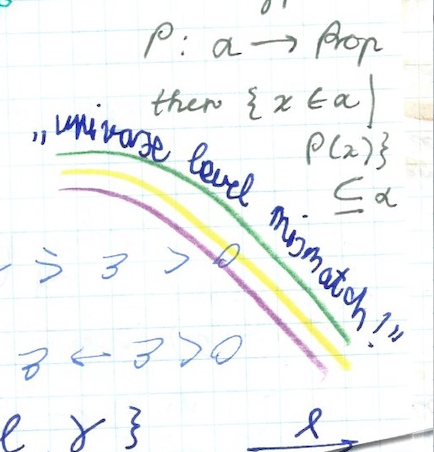 P: α → Prop
then {x ∈ α |
P(x)}
⊆ α
„universe level mismatch!"
3 > 0
3 ← 3 > 0
γ }
l